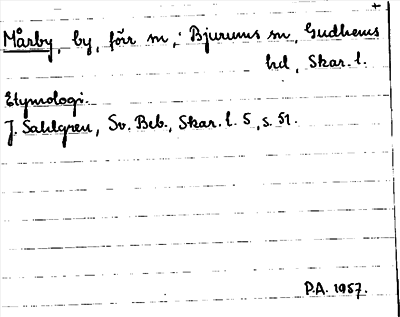 +
Mårby, by, förr m, : Bjurums sn, Gudhems
hd, Skar. l.
Etymologi.
J. Sahlgren, Sv. Beb., Skar. l. 5, s. 51.
P.A. 1957.